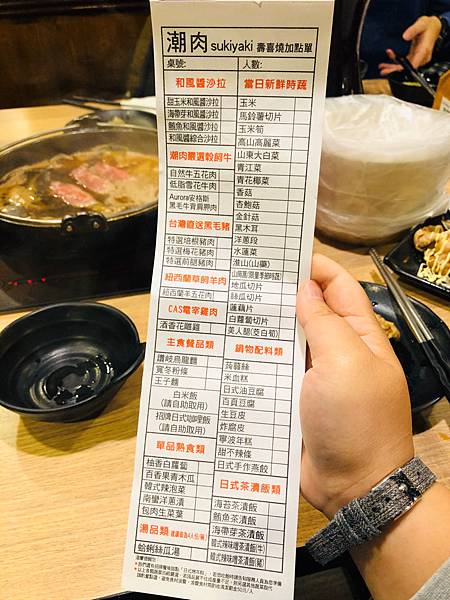 潮肉 sukiyaki 壽喜燒加點單
桌號:
人數:
和風醬沙拉
甜玉米和風醬沙拉
海帶芽和風醬沙拉
鮪魚和風醬沙拉
和風醬綜合沙拉
潮肉嚴選穀飼牛
自然牛五花肉
低脂雪花牛肉
Aurora安格斯
黑毛牛背肩胛肉
台灣直送黑毛豬
特選培根豬肉
特選梅花豬肉
特選前腿豬肉
紐西蘭草飼羊肉
紐西蘭羊五花肉
CAS電宰雞肉
酒香花雕雞
主食餐品類
讚岐烏龍麵
寬冬粉條
王子麵
白米飯
(請自助取用)
招牌日式咖哩飯
(請自助取用)
單品熟食類
柚香白蘿蔔
百香果青木瓜
韓式辣泡菜
南蠻洋蔥漬
包肉生菜葉
湯品類
蛤蜊絲瓜湯
當日新鮮時蔬
玉米
馬鈴薯切片
玉米筍
高山高麗菜
山東大白菜
青江菜
青花椰菜
香菇
杏鮑菇
金針菇
黑木耳
洋蔥段
水蓮菜
淮山(山藥)
山茼蒿(限量季節時蔬)
地瓜切片
絲瓜切片
蓮藕片
白蘿蔔切片
美人腿(茭白筍)
鍋物配料類
蒟蒻絲
米血糕
日式油豆腐
百頁豆腐
生豆皮
炸腐皮
寧波年糕
甜不辣條
日式手作燕餃
日式茶漬飯類
海苔茶漬飯
鮪魚茶漬飯
海帶芽茶漬飯
韓式辣味噌茶漬飯(牛)
韓式辣味噌茶漬飯(豬)